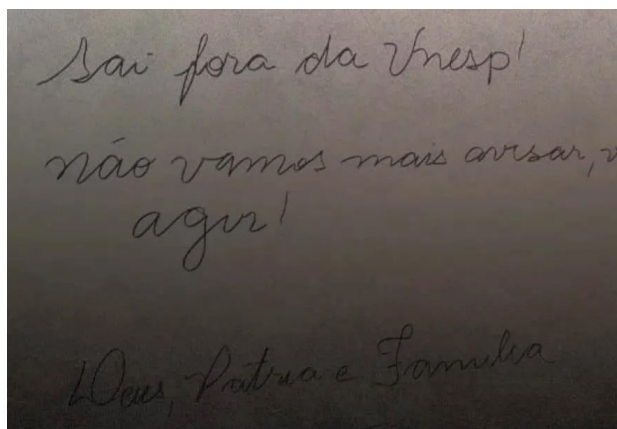 Sai fora da Unesp!
não vamos mais avisar, v
agir!
Deus, Patria e Familia